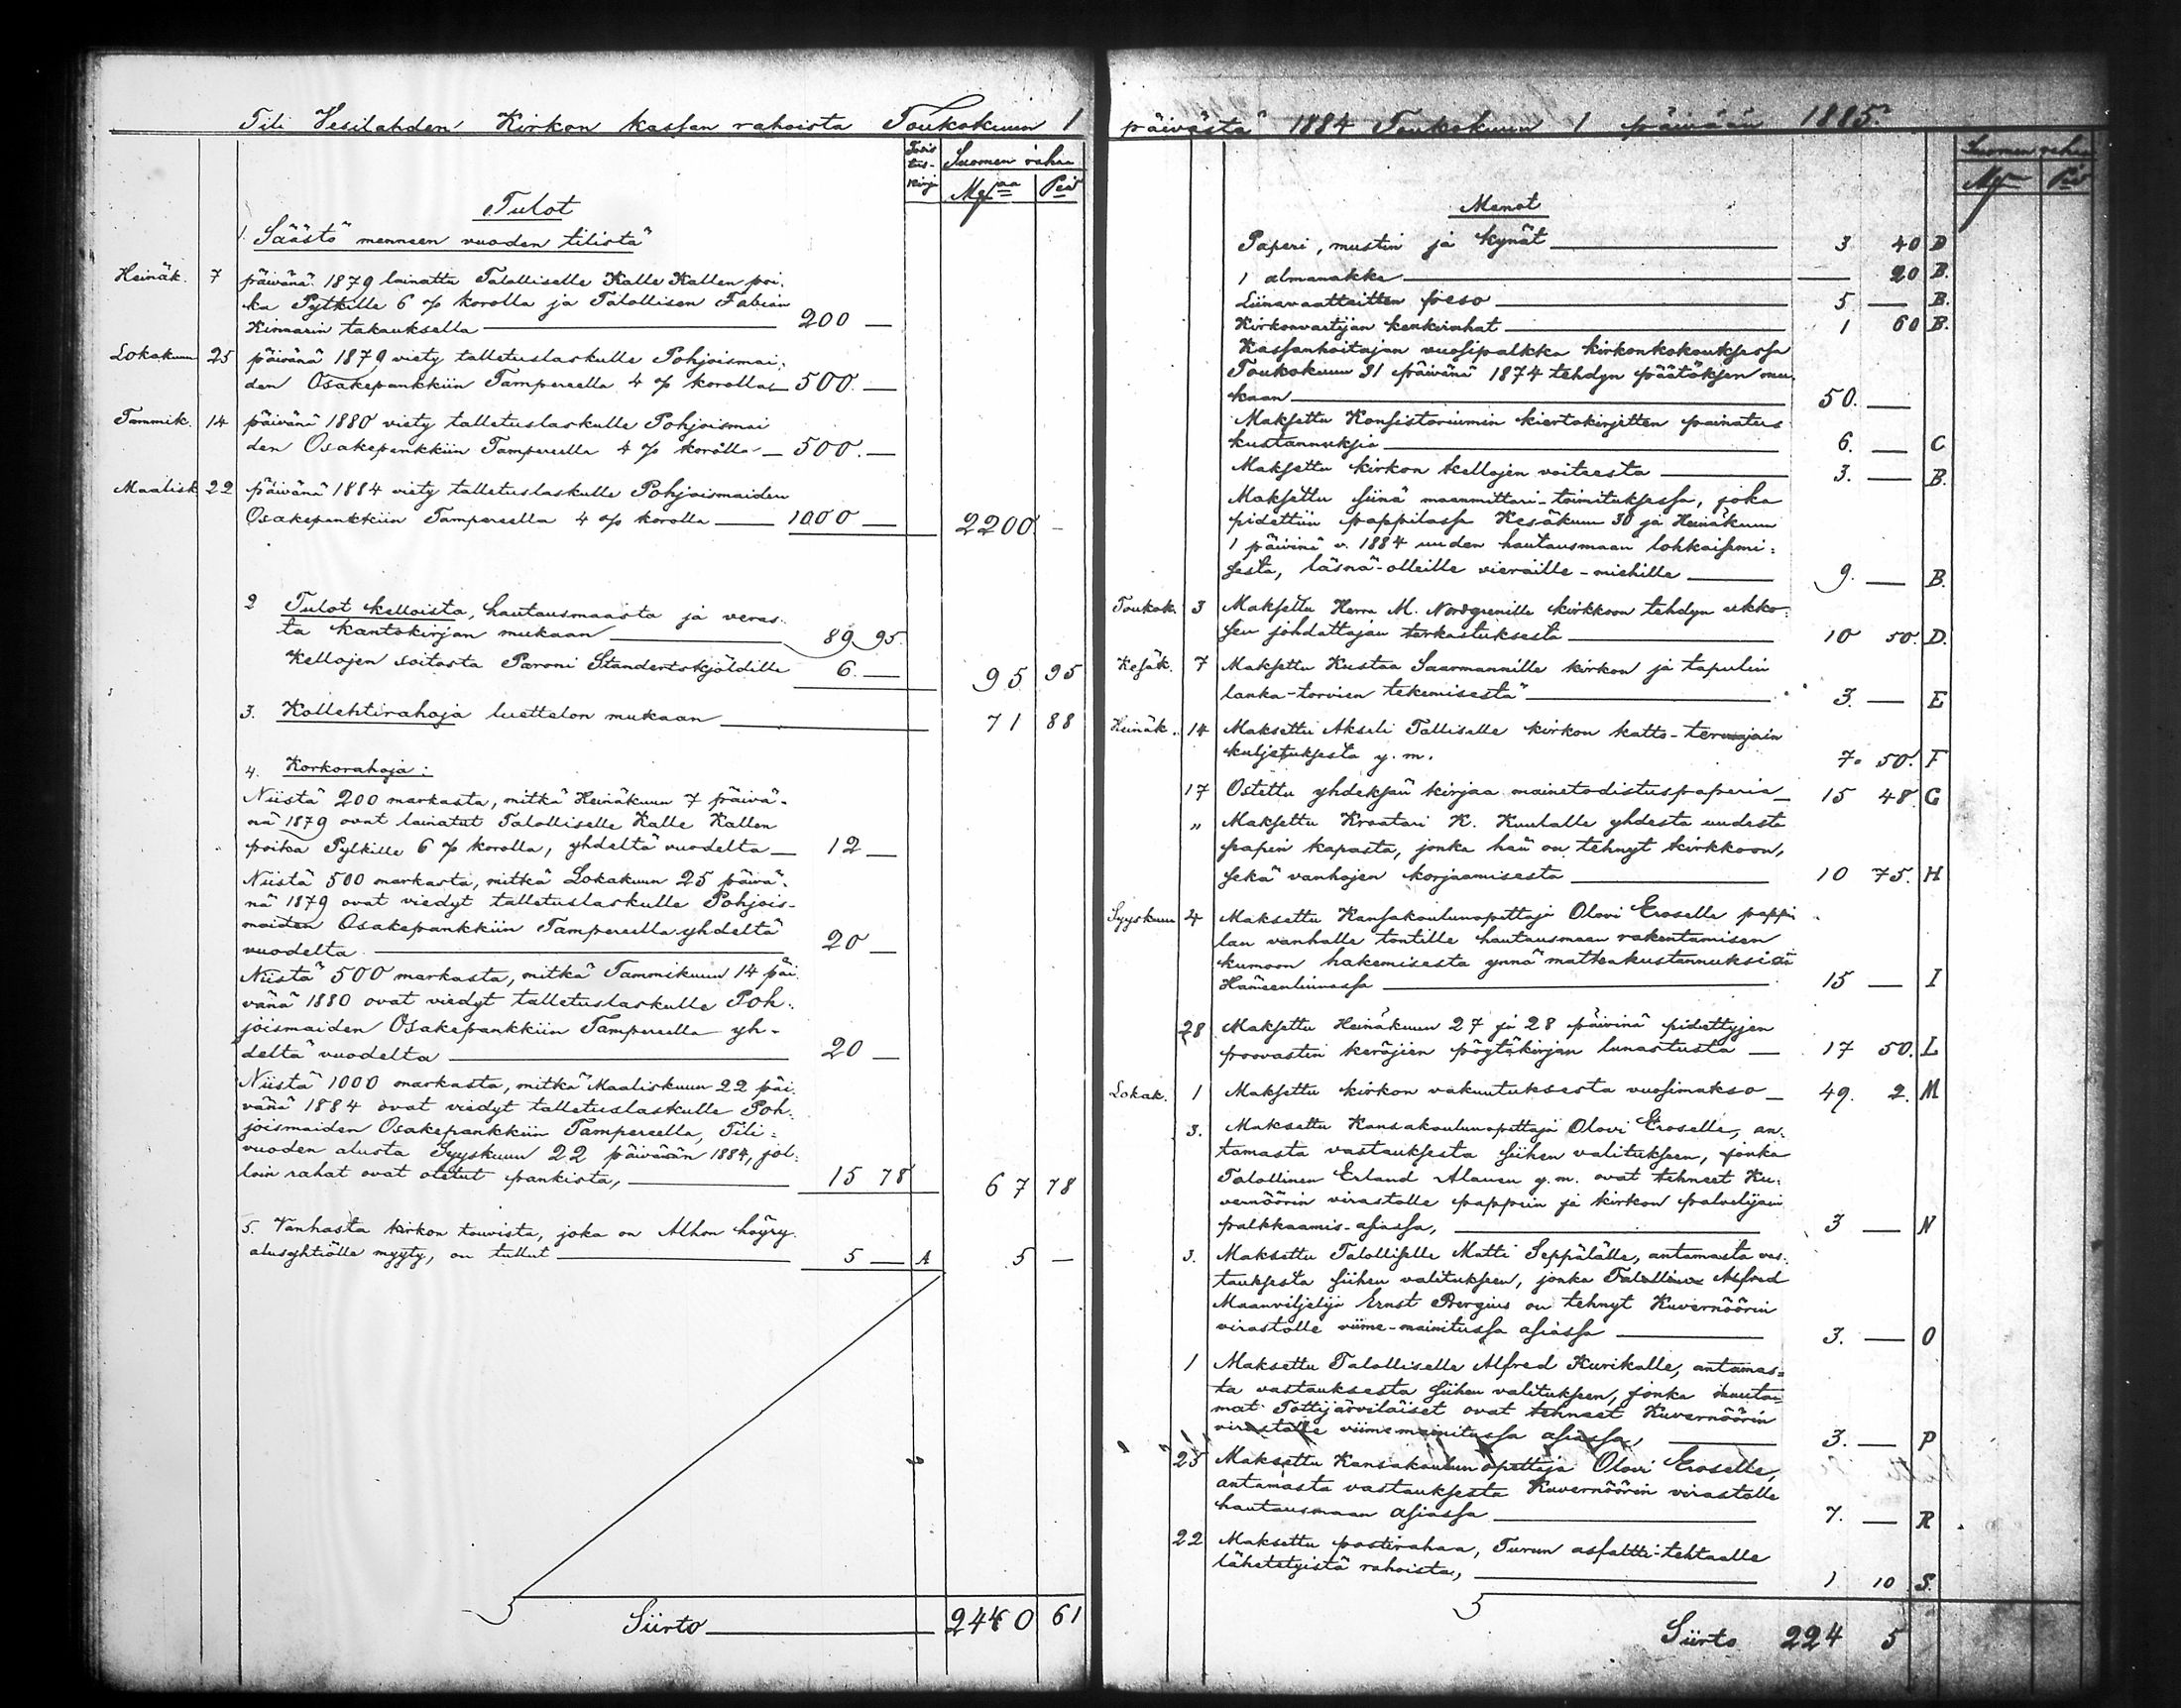 Tili Vesilahden Kirkon kassan rahoista Toukokuun 1
Tosis
tus-
kirja
Suomen rahaa
Mkaa
Piä
Tulot
1. Säästö menneen vuoden tilistä
Heinäk. 7 päivänä 1879 lainattu Talolliselle Kalle Kallen poi-
ka Pylkille 6 % korolla ja Talollisen Fabian
takauksella 200 —
Lokakuun 25 päivänä 1879 viety talletuslaskulle Pohjoismai-
den Osakepankkiin Tampereella 4 % korolla 500. —
Tammik. 14 päivänä 1880 viety talletuslaskulle Pohjoismai
den Osakepankkiin Tampereella 4 % korolla 500. —
Maalisk. 22 päivänä 1884 viety talletuslaskulle Pohjoismaiden
Osakepankkiin Tampereella 4 % korolla 1000 — 2200 —
2 Tulot kelloista, hautausmaasta ja veras-
ta kantokirjan mukaan 89 95.
Kellojen soitosta Paroni Standertskjöldille 6. — 95 95
3. Kollehtirahoja luettelon mukaan 71 88
4. Korkorahoja:
Niistä 200 markasta, mitkä Heinäkuun 7 päivä-
nä 1879 ovat lainatut Talolliselle Kalle Kallen
poika Pylkille 6 % korolla, yhdeltä vuodelta 12 —
Niistä 500 markasta, mitkä Lokakuun 25 päivä-
nä 1879 ovat viedyt talletuslaskulle Pohjois-
maiden Osakepankkiin Tampereella yhdeltä
vuodelta 20 —
Niistä 500 markasta, mitkä Tammikuun 14 päi
vänä 1880 ovat viedyt talletuslaskulle Poh-
joismaiden Osakepankkiin Tampereella yh-
deltä vuodelta 20 —
Niistä 1000 markasta, mitkä Maaliskuun 22 päi
vänä 1884 ovat viedyt talletuslaskulle Poh-
joismaiden Osakepankkiin Tampereella, Tili-
vuoden alusta Syyskuun 22 päivään 1884, jol-
loin rahat ovat otetut pankista, 15 78 67 78
5. Vanhasta kirkon touvista, joka on Alhon höyry-
alusyhtiölle myyty, on tullut 5 — A 5 —
Siirto 2440 61
päivästä 1884 Toukokuun 1 päivään 1885.
Suomen rahaa
Mkaa
Piä
Menot
Paperi, mustin ja kynät 3 40 B
1 almanakka — 20 B.
Liinavaatteitten peso 5 — B.
Kirkonvartijan kenkirahat 1 60 B.
Kassanhoitajan vuosipalkka kirkonkokouksessa
Toukokuun 31 päivänä 1874 tehdyn päätöksen mu-
kaan 50. —
Maksettu Konsistoriumin kiertokirjetten painatus
kustannuksia 6. — C
Maksettu kirkon kellojen voiteesta 3. — B.
Maksettu siinä maanmittari-toimituksessa, joka
pidettiin pappilassa Kesäkuun 30 ja Heinäkuun
1 päivinä v. 1884 uuden hautausmaan lohkaisemi-
sesta, läsnä-olleille vieraille-miehille 9. — B.
Toukok. 3 Maksettu Herra M. Nordgrenille kirkkoon tehdyn ukko-
sen johdattajan tarkastuksesta 10 50. D.
Kesäk. 7 Maksettu Kustaa Saarmannille kirkon ja tapulin
lanka-torvien tekemisestä 3. — E
Heinäk. 14 Maksettu Akseli Talliselle kirkon katto-tervaajain
kuljetuksesta y. m. 7. 50. F
17 Ostettu yhdeksän kirjaa mainetodistuspaperia 15 48. G
„ Maksettu Kraatari K. Kuuhalle yhdestä uudesta
papin kapasta, jonka hän on tehnyt kirkkoon,
sekä vanhojen korjaamisesta 10 75. H
Syyskuun 4 Maksettu Kansakoulunopettaja Olovi Eroselle pappi
lan vanhalle tontille hautausmaan rakentamisen
kumoon hakemisesta ynnä matkakustannuksiin
Hämeenlinnassa 15 — I
28 Maksettu Heinäkuun 27 ja 28 päivinä pidettyjen
provastin keräjien pöytäkirjan lunastusta 17 50. L
Lokak. 1 Maksettu kirkon vakuutuksesta vuosimakso 49. 2. M
3. Maksettu Kansakoulunopettaja Olovi Eroselle, an-
tamasta vastauksesta siihen valitukseen, jonka
Talollinen Erland Alanen y. m. ovat tehneet Ku-
vernöörin virastolle pappein ja kirkon palvelijain
palkkaamis-asiassa, 3 — N
3. Maksettu Talolliselle Matti Seppälälle, antamasta vas-
tauksesta siihen valitukseen, jonka Talollinen Alfred
Maanviljelijä Ernst Bergius on tehnyt Kuvernöörin
virastolle viime-mainitussa asiassa 3. — O
1 Maksettu Talolliselle Alfred Kurikalle, antamas-
ta vastauksesta siihen valitukseen, jonka muuta-
mat Tottijärviläiset ovat tehneet Kuvernöörin
virastolle viimemainitussa asiassa, 3. — P
25 Maksettu Kansakoulunopettaja Olovi Eroselle,
antamasta vastauksesta Kuvernöörin virastolle
hautausmaan asiassa 7. — R
22 Maksettu postirahaa, Turun asfaltti-tehtaalle
lähetetyistä rahoista, 1 10 S.
Siirto 224 5